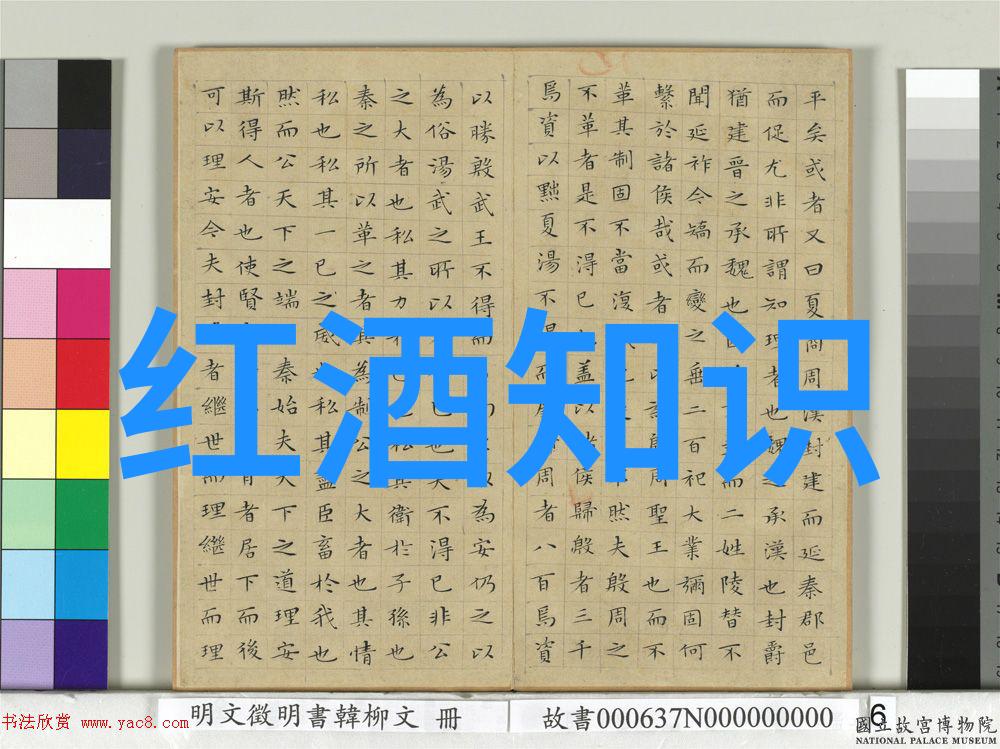 平矣或者又曰夏商周漢封建而延秦郡邑
而促尤非所謂知理者也魏之承漢也封爵
猶建晉之承魏也而二姓陵替不
聞延祚今矯而變之垂二百祀大業彌固何
繫於諸侯哉或者周聖王也而不
革其制固不當復然夫殷周之
不革者是不得已蓋以諸侯歸殷者三千
焉資以黜夏湯不得而周者八百焉資
以勝殷武王不得而為安仍之以
為俗湯武之所以已也夫不得已非公
之大者也私其力也私其衛於子孫也
秦之所以革之者其為制公之大者也其情
私也私其一己之威也私其盡臣畜於我也
然而公天下之端秦始夫天下之道理安
斯得人者也使賢者居下而後
可以理安今夫封者繼世而理繼世而理
红酒知识
书法欣赏 www.yac8.com
明文徵明書韓柳文 冊
故書000637N000000000
6
國立故宮博物院
NATIONAL PALACE MUSEUM